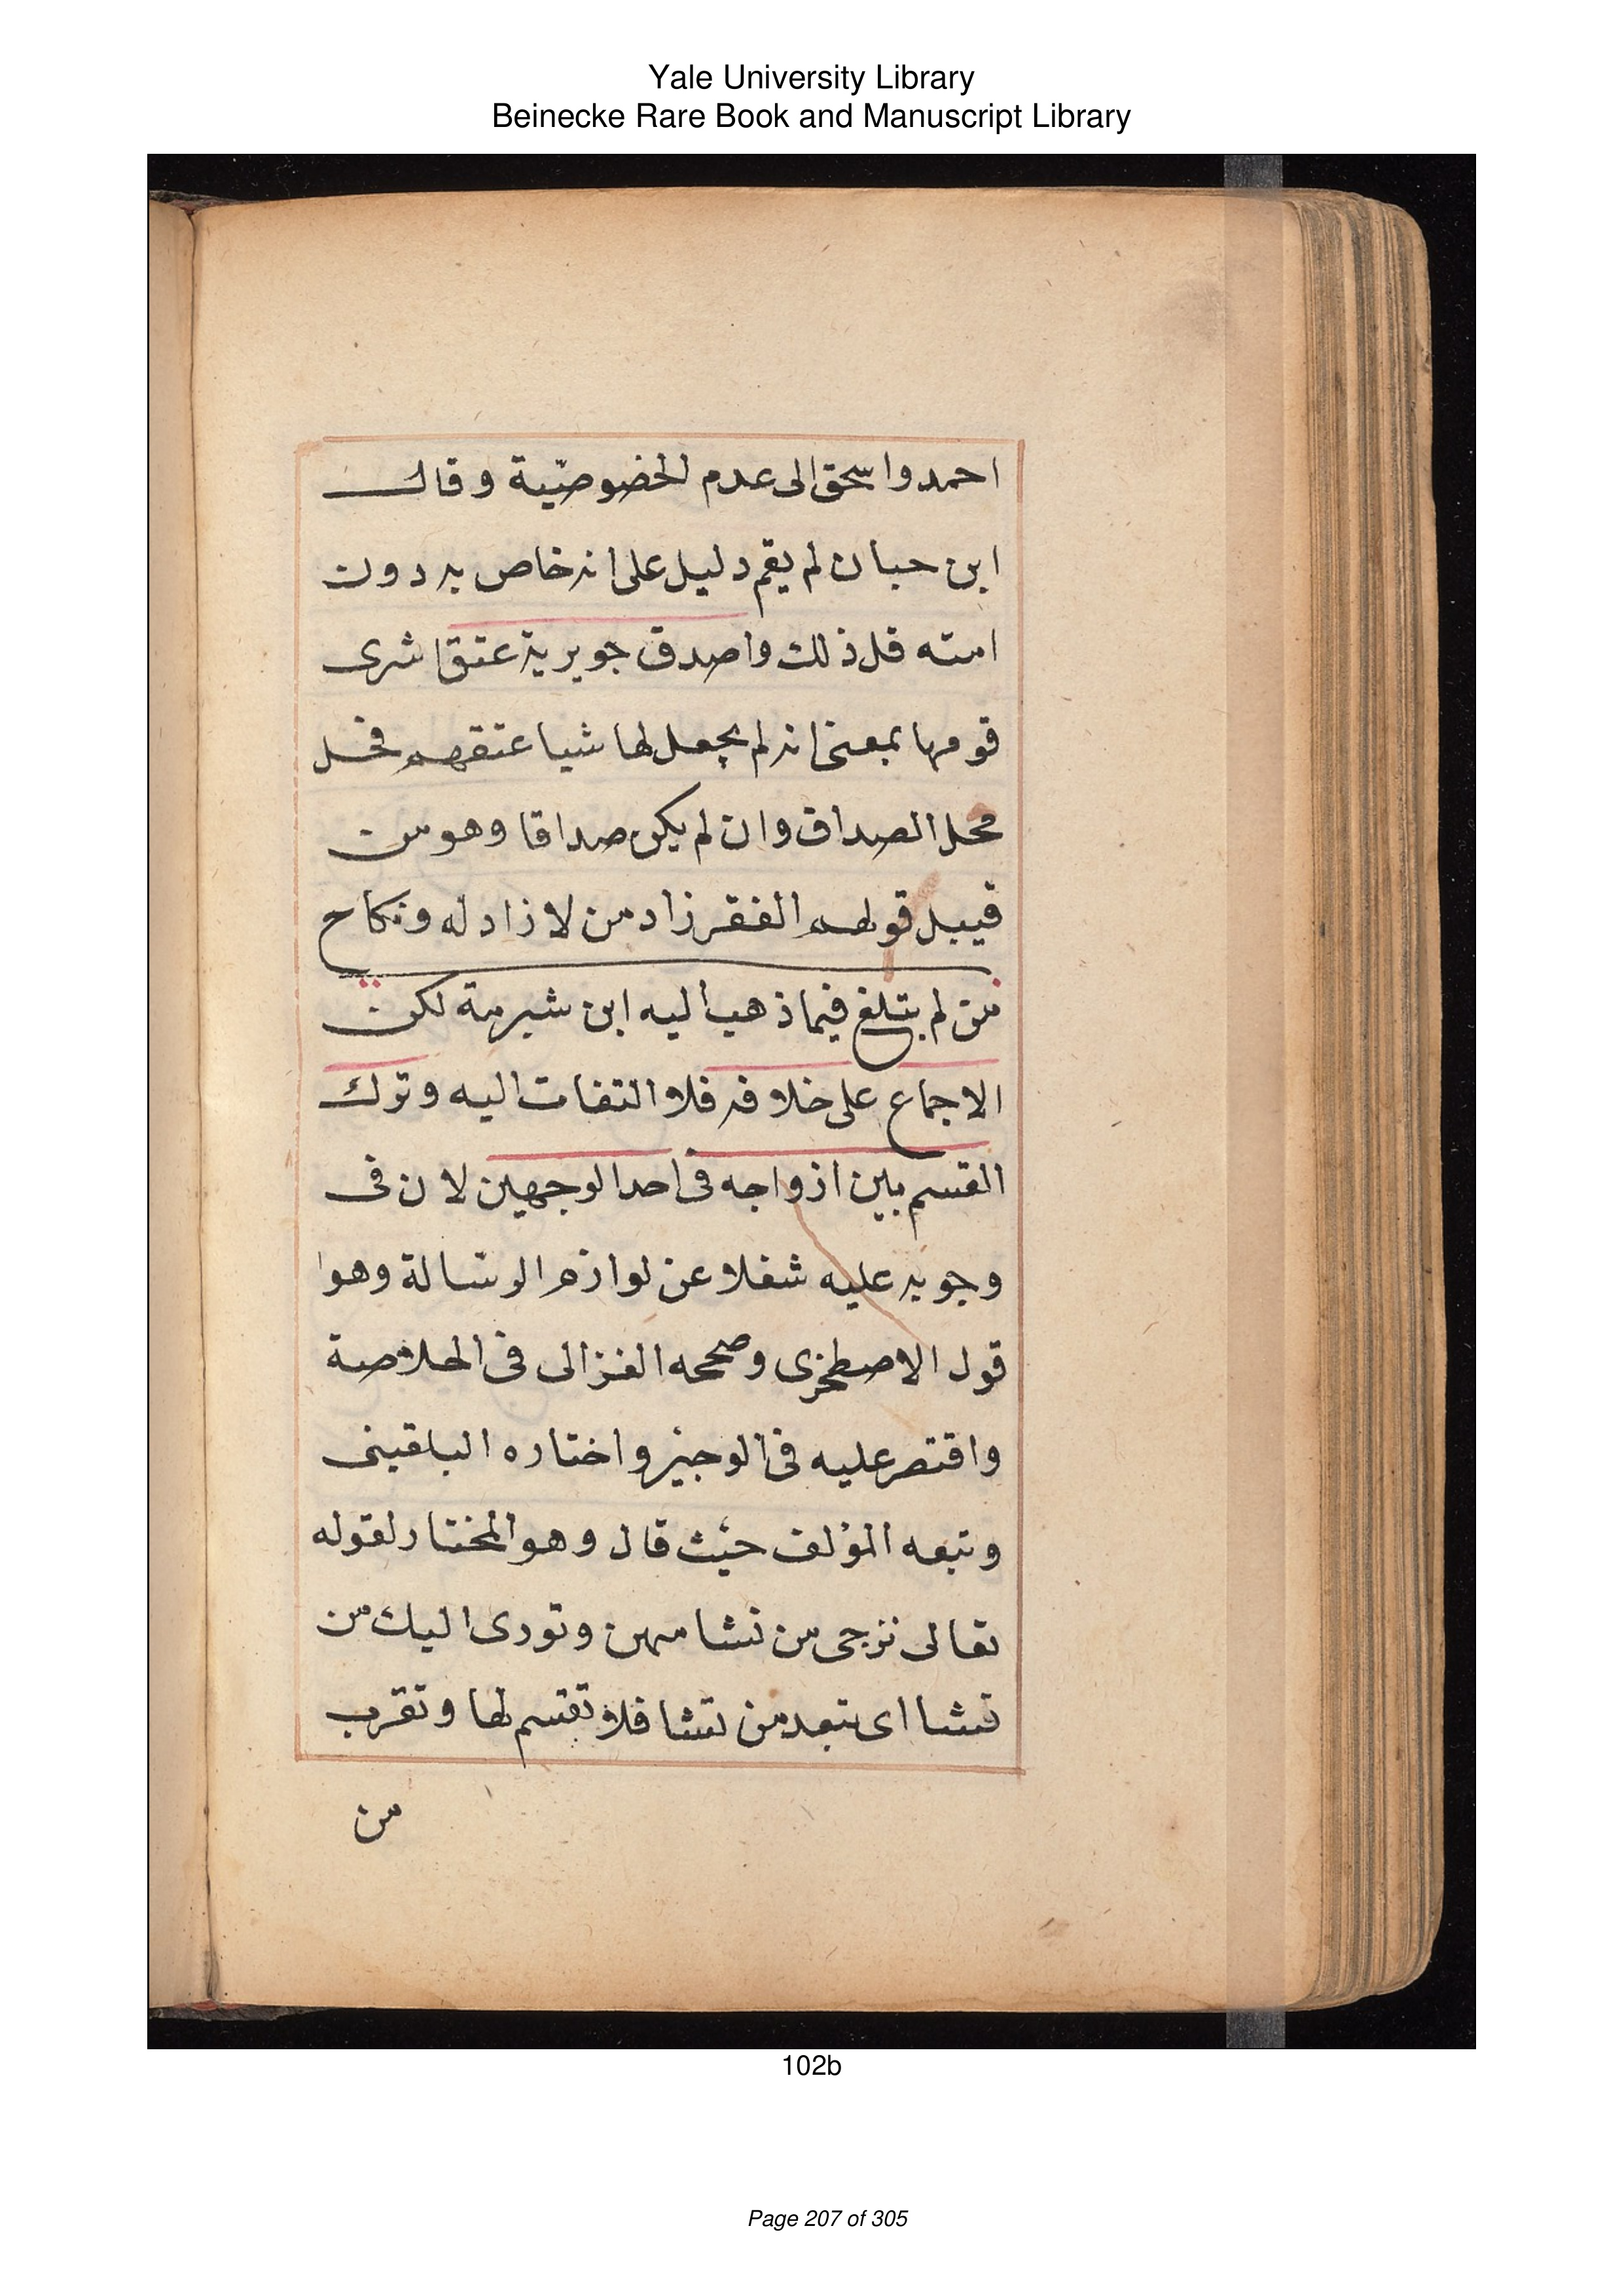 Yale University Library
Beinecke Rare Book and Manuscript Library
احمد واسحق الى عدم الخصوصية وقال
ابن حبان لم يقم دليل على انه خاص به دون
امته قل ذلك واصدق جويرية عتق اشرى
قومها بمعنى انه لم يجعل لها شيا عتقهم فحل
محل الصداق وان لم يكن صداقا وهو من
قبيل قولهم الفقر زاد من لا زاد له ونكاح
من لم يبتلغ فيما ذهب اليه ابن شبرمة لكن
الاجماع على خلافه فلا التفات اليه وترك
القسم بين ازواجه فى احد الوجهين لان فى
وجوبه عليه شغلا عن لوازم الرسالة وهوا
قول الاصطخرى وصححه الغزالى فى الخلاصة
واقتصر عليه فى الوجيز واختاره البلقينى
وتبعه المؤلف حيث قال وهو المختار لقوله
تعالى ترجى من تشا منهن وتورى اليك من
تشا اى تبعد من تشا فلا تقسم لها وتقرب
من
102b
Page 207 of 305